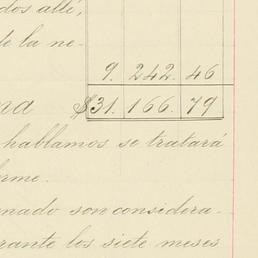 dos allí,
de la ne-
9. 242. 46
$31. 166. 79
hablamos se tratará
orme.
nado son considera-
rante los siete meses